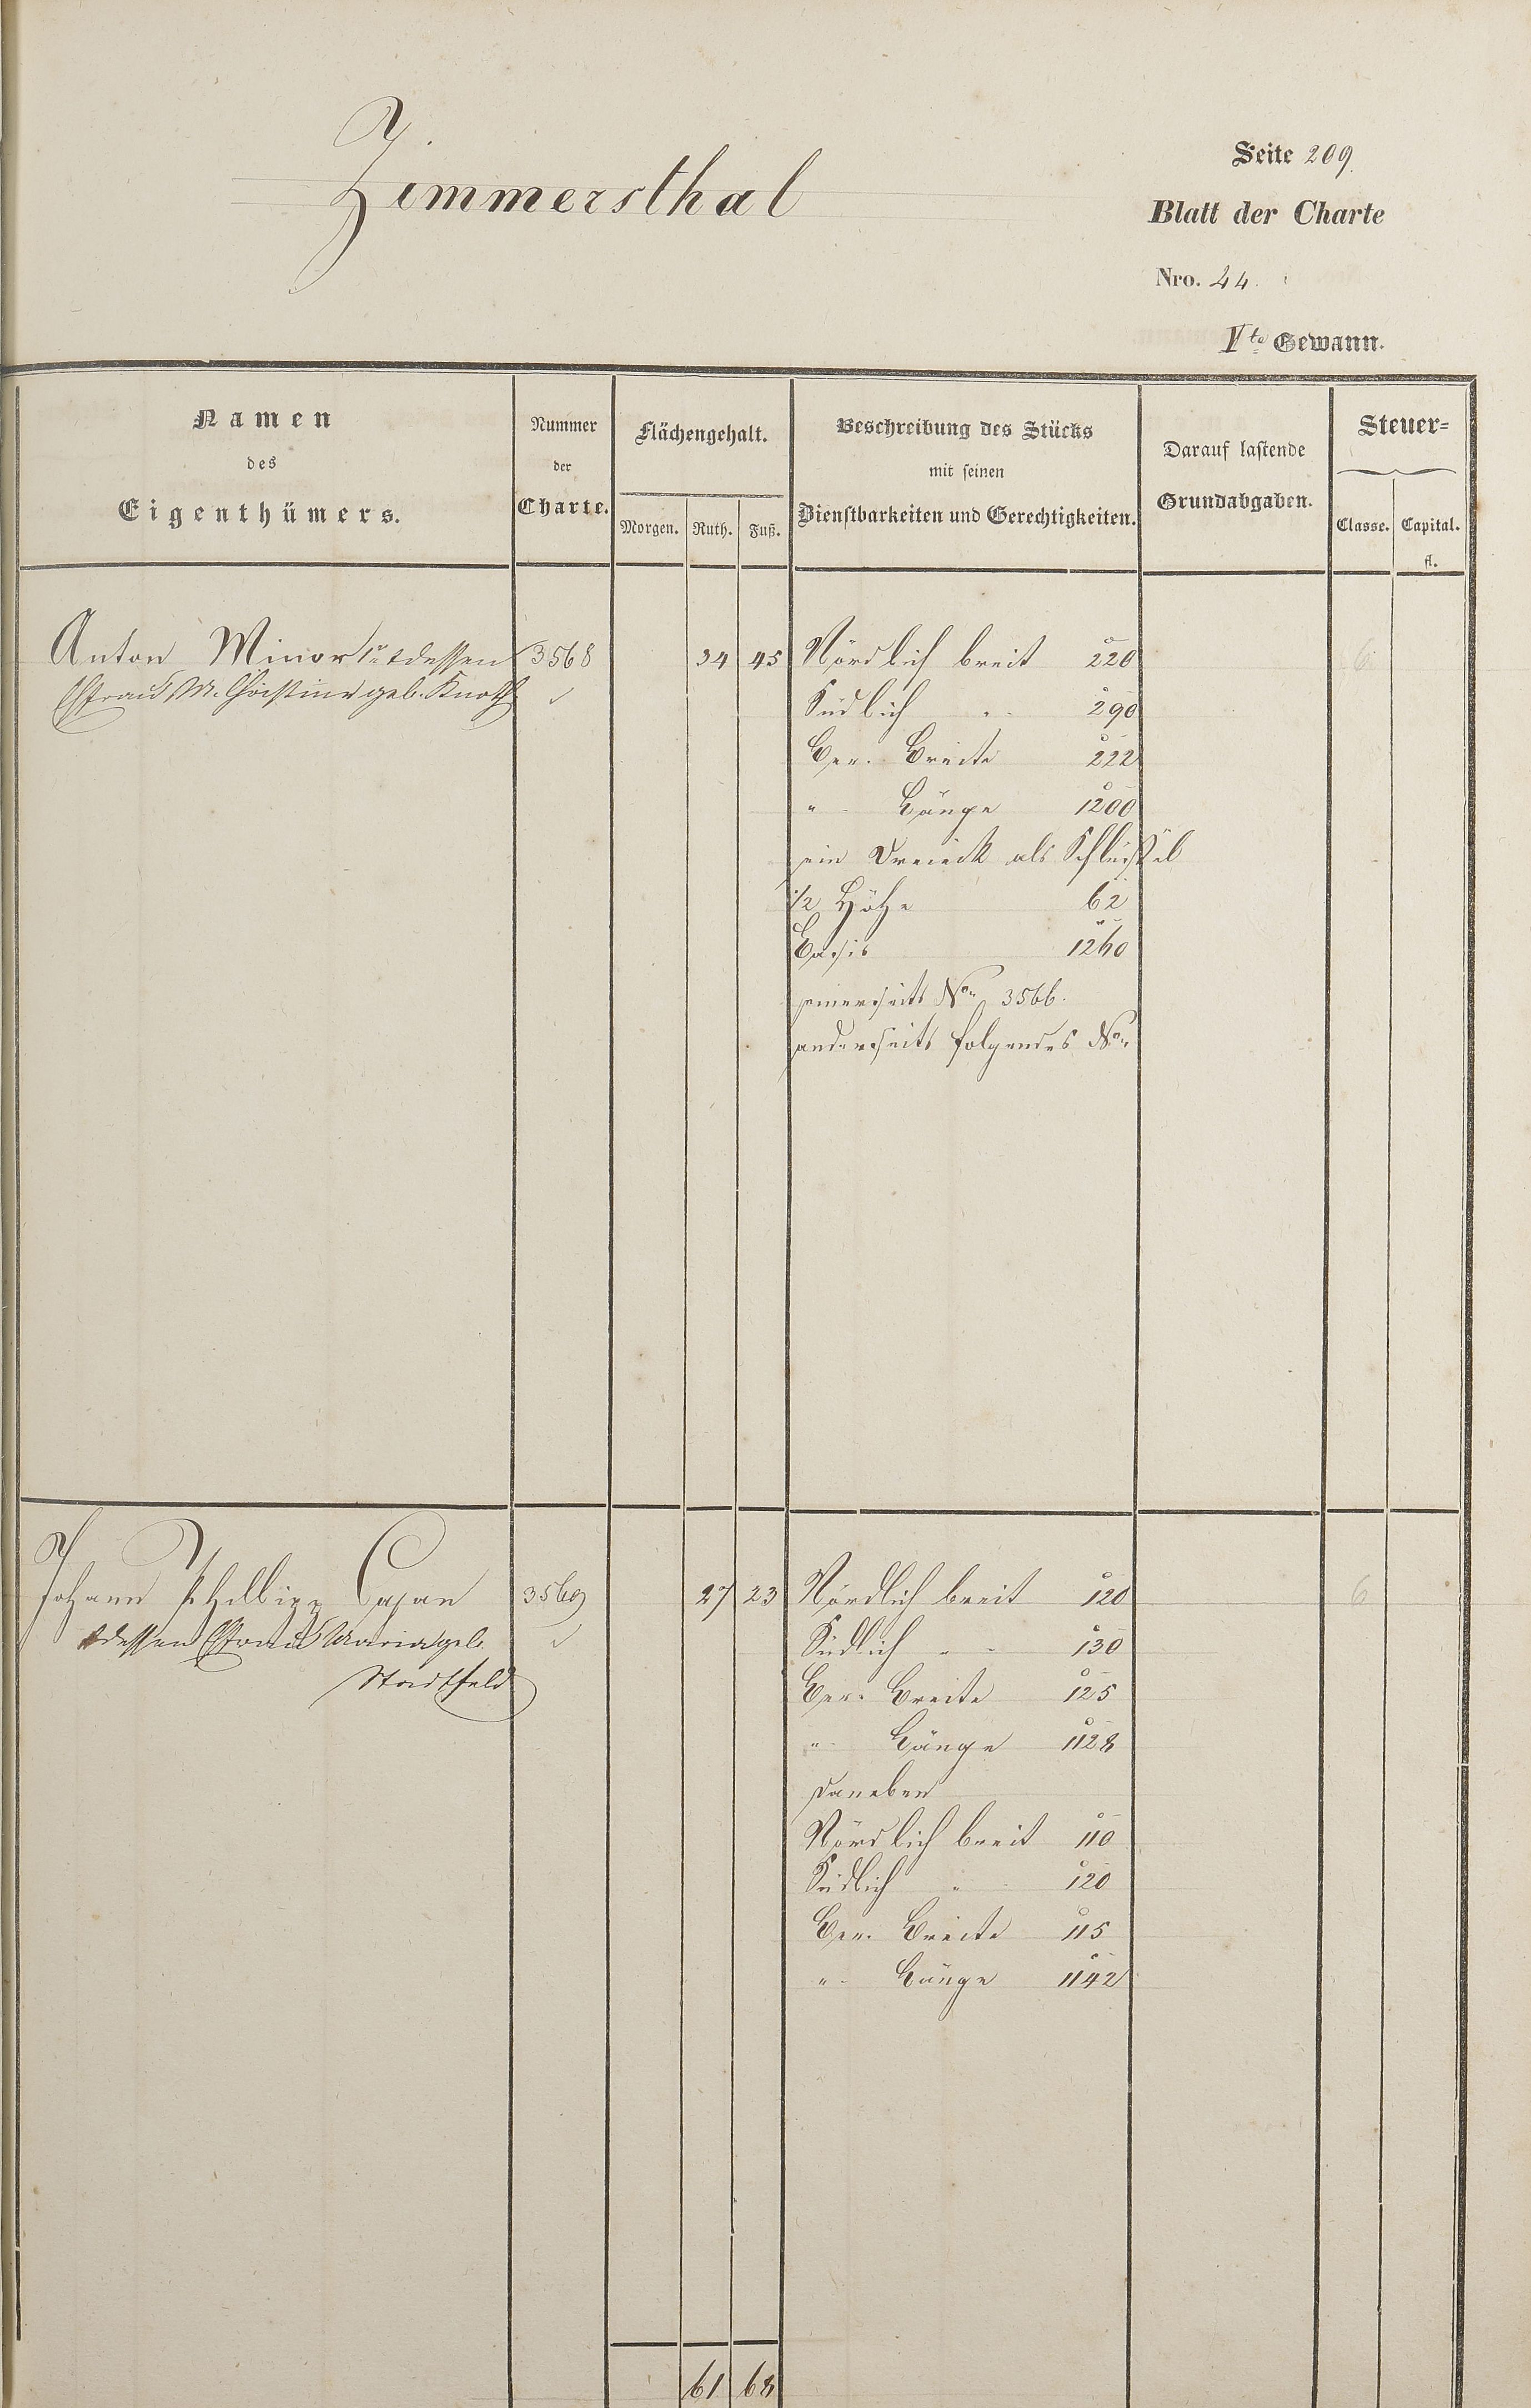 Zimmersthal
Seite 209
Blatt der Charte
Nro. 44.
Vte Gewann.
Namen
des
Eigenthümers.
Nummer
der
Charte.
Flächengehalt.
Morgen. Ruth. Fuß.
Beschreibung des Stücks
mit seinen
Dienstbarkeiten und Gerechtigkeiten.
Darauf lastende
Grundabgaben.
Steuer-
Classe. Capital.
fl.
Anton Minor 1r. & dessen 3568 34 45 Nördlich breit 220 6
Ehfrau M. Christine geb. Knoth
Südlich " 290
Ger. Breite 222
" Länge 1200
ein Dreieck als Schlüssel
1/2 Höhe 62
Basis 1260
einerseits Nro. 3566.
anderseits folgendes Nro.
Johann Philipp Cajan 3569 27 23 Nördlich breit 120 6
& dessen Ehfrau Maria geb.
Stadtfeld
Südlich " 130
Ger. Breite 125
" Länge 1128
daneben
Nördlich breit 110
Südlich " 120
Ger. Breite 115
" Länge 1142
61 68